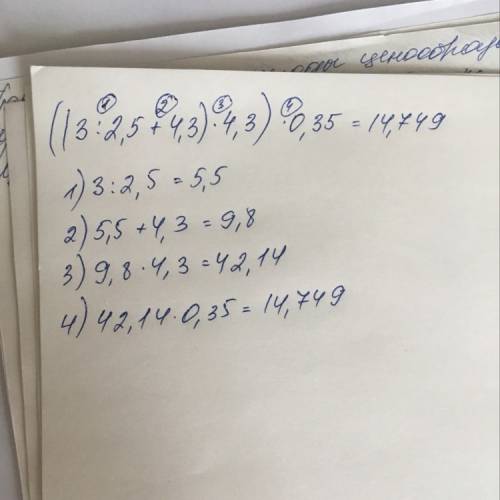 ценообразо
((3:2,5+4,3)·4,3)·0,35=14,749
1 2 3 4
1) 3:2,5=5,5
2) 5,5+4,3=9,8
3) 9,8·4,3=42,14
4) 42,14·0,35=14,749